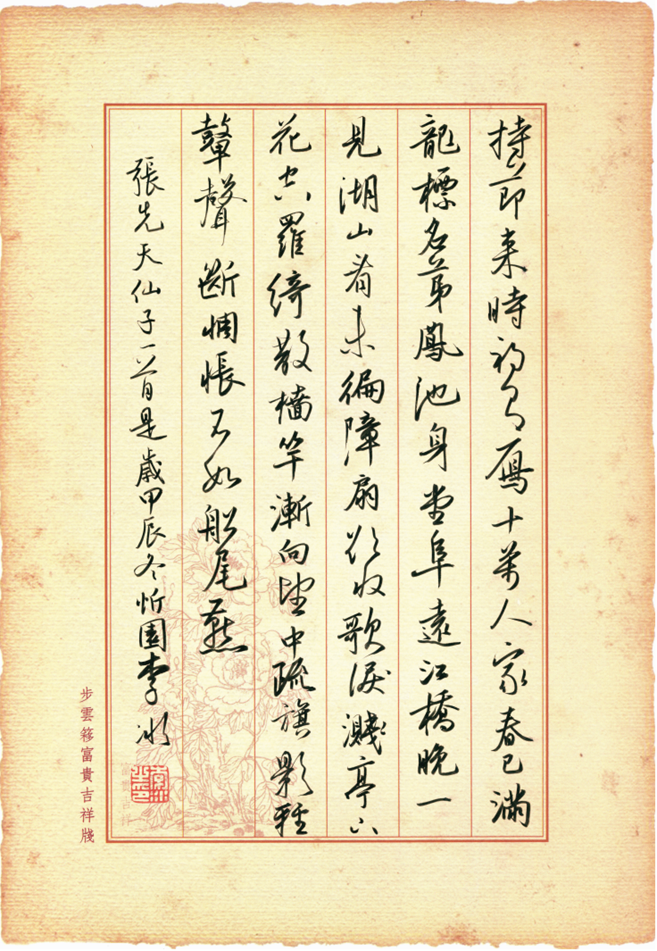 持節来時初有鴈十萬人家春已滿
龍標名第鳳池身堂阜遠江橋晚一
見湖山看未徧障扇欲收歌淚濺亭下
花空羅綺散檣竿漸向望中疏旗影轉
鼙聲斷惆悵不如船尾燕
張先天仙子一首是歲甲辰冬忻園李冰
步雲簃富貴吉祥牋